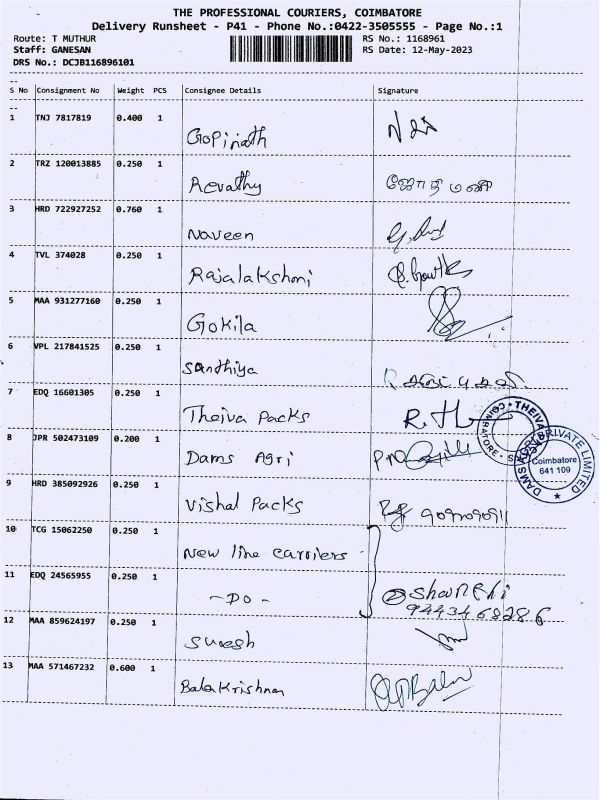 THE PROFESSIONAL COURIERS, COIMBATORE
Delivery Runsheet - P41 - Phone No.:0422-3505555 - Page No.:1
Route: T MUTHUR RS No.: 1168961
Staff: GANESAN RS Date: 12-May-2023
DRS No.: DCJB116896101
S No Consignment No Weight PCS Consignee Details Signature
1 TNJ 7817819 0.400 1
Gopinath
2 TRZ 120013885 0.250 1
Revathy ஜோதிமணி
3 HRD 722927252 0.760 1
Naveen
4 TVL 374028 0.250 1
Rajalakshmi
5 MAA 931277160 0.250 1
Gokila
6 VPL 217841525 0.250 1
Santhiya
7 EDQ 16601305 0.250 1
Theiva Packs
8 JPR 502473109 0.200 1
Dams Agri
Coimbatore
641 109
9 HRD 385092926 0.250 1
Vishal Packs
10 TCG 15062250 0.250 1
New line carriers
11 EDQ 24565955 0.250 1
- DO -
12 MAA 859624197 0.250 1
Suresh
13 MAA 571467232 0.600 1
Bala Krishnan